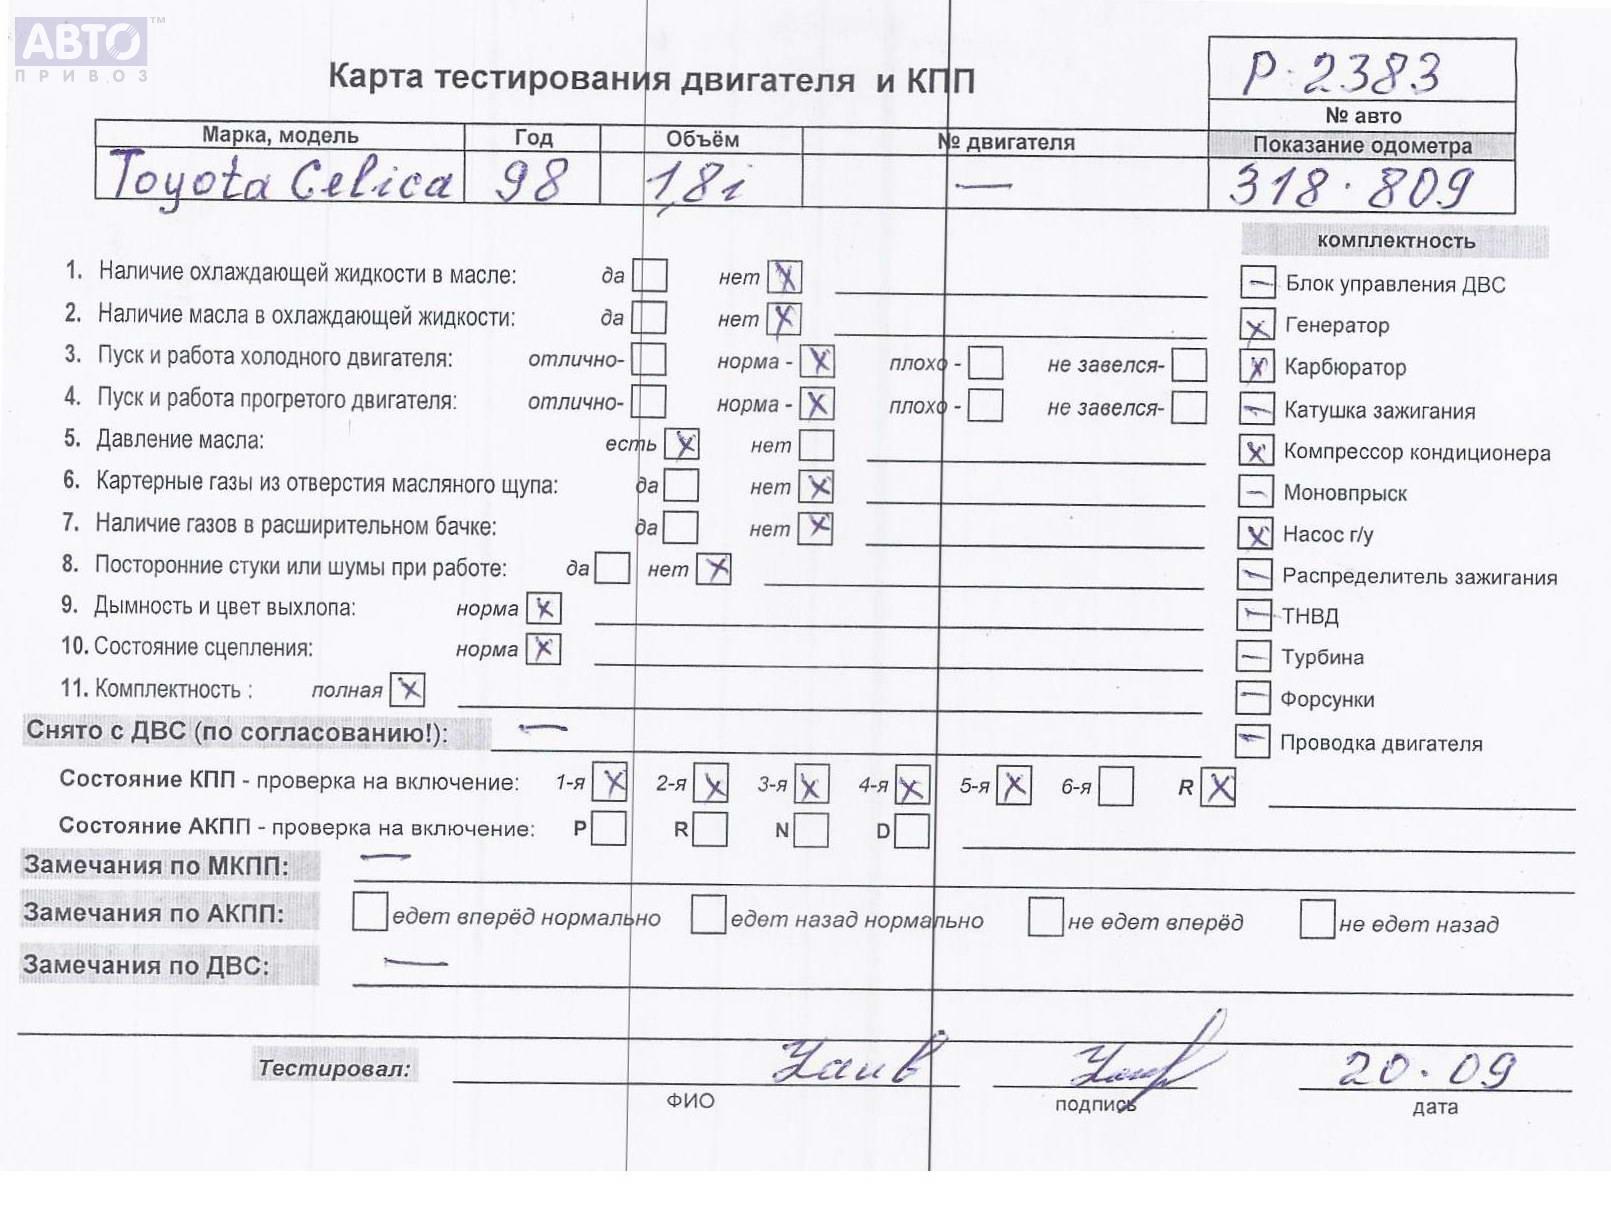 АВТО™
ПРИВОЗ
Карта тестирования двигателя и КПП
Р-2383
№ авто
Марка, модель Год Объём № двигателя Показание одометра
Toyota Celica 98 1,8i — 318·809
комплектность
1. Наличие охлаждающей жидкости в масле: да нет x
— Блок управления ДВС
2. Наличие масла в охлаждающей жидкости: да нет x
x Генератор
3. Пуск и работа холодного двигателя: отлично- норма - x плохо - не завелся-
x Карбюратор
4. Пуск и работа прогретого двигателя: отлично- норма - x плохо - не завелся-
— Катушка зажигания
5. Давление масла: есть x нет
x Компрессор кондиционера
6. Картерные газы из отверстия масляного щупа: да нет x
— Моновпрыск
7. Наличие газов в расширительном бачке: да нет x
x Насос г/у
8. Посторонние стуки или шумы при работе: да нет x
— Распределитель зажигания
9. Дымность и цвет выхлопа: норма x
— ТНВД
10. Состояние сцепления: норма x
— Турбина
11. Комплектность : полная x
— Форсунки
Снято с ДВС (по согласованию!): —
— Проводка двигателя
Состояние КПП - проверка на включение: 1-я x 2-я x 3-я x 4-я x 5-я x 6-я R x
Состояние АКПП - проверка на включение: P R N D
Замечания по МКПП: —
Замечания по АКПП: едет вперёд нормально едет назад нормально не едет вперёд не едет назад
Замечания по ДВС: —
Тестировал: 20.09
ФИО подпись дата